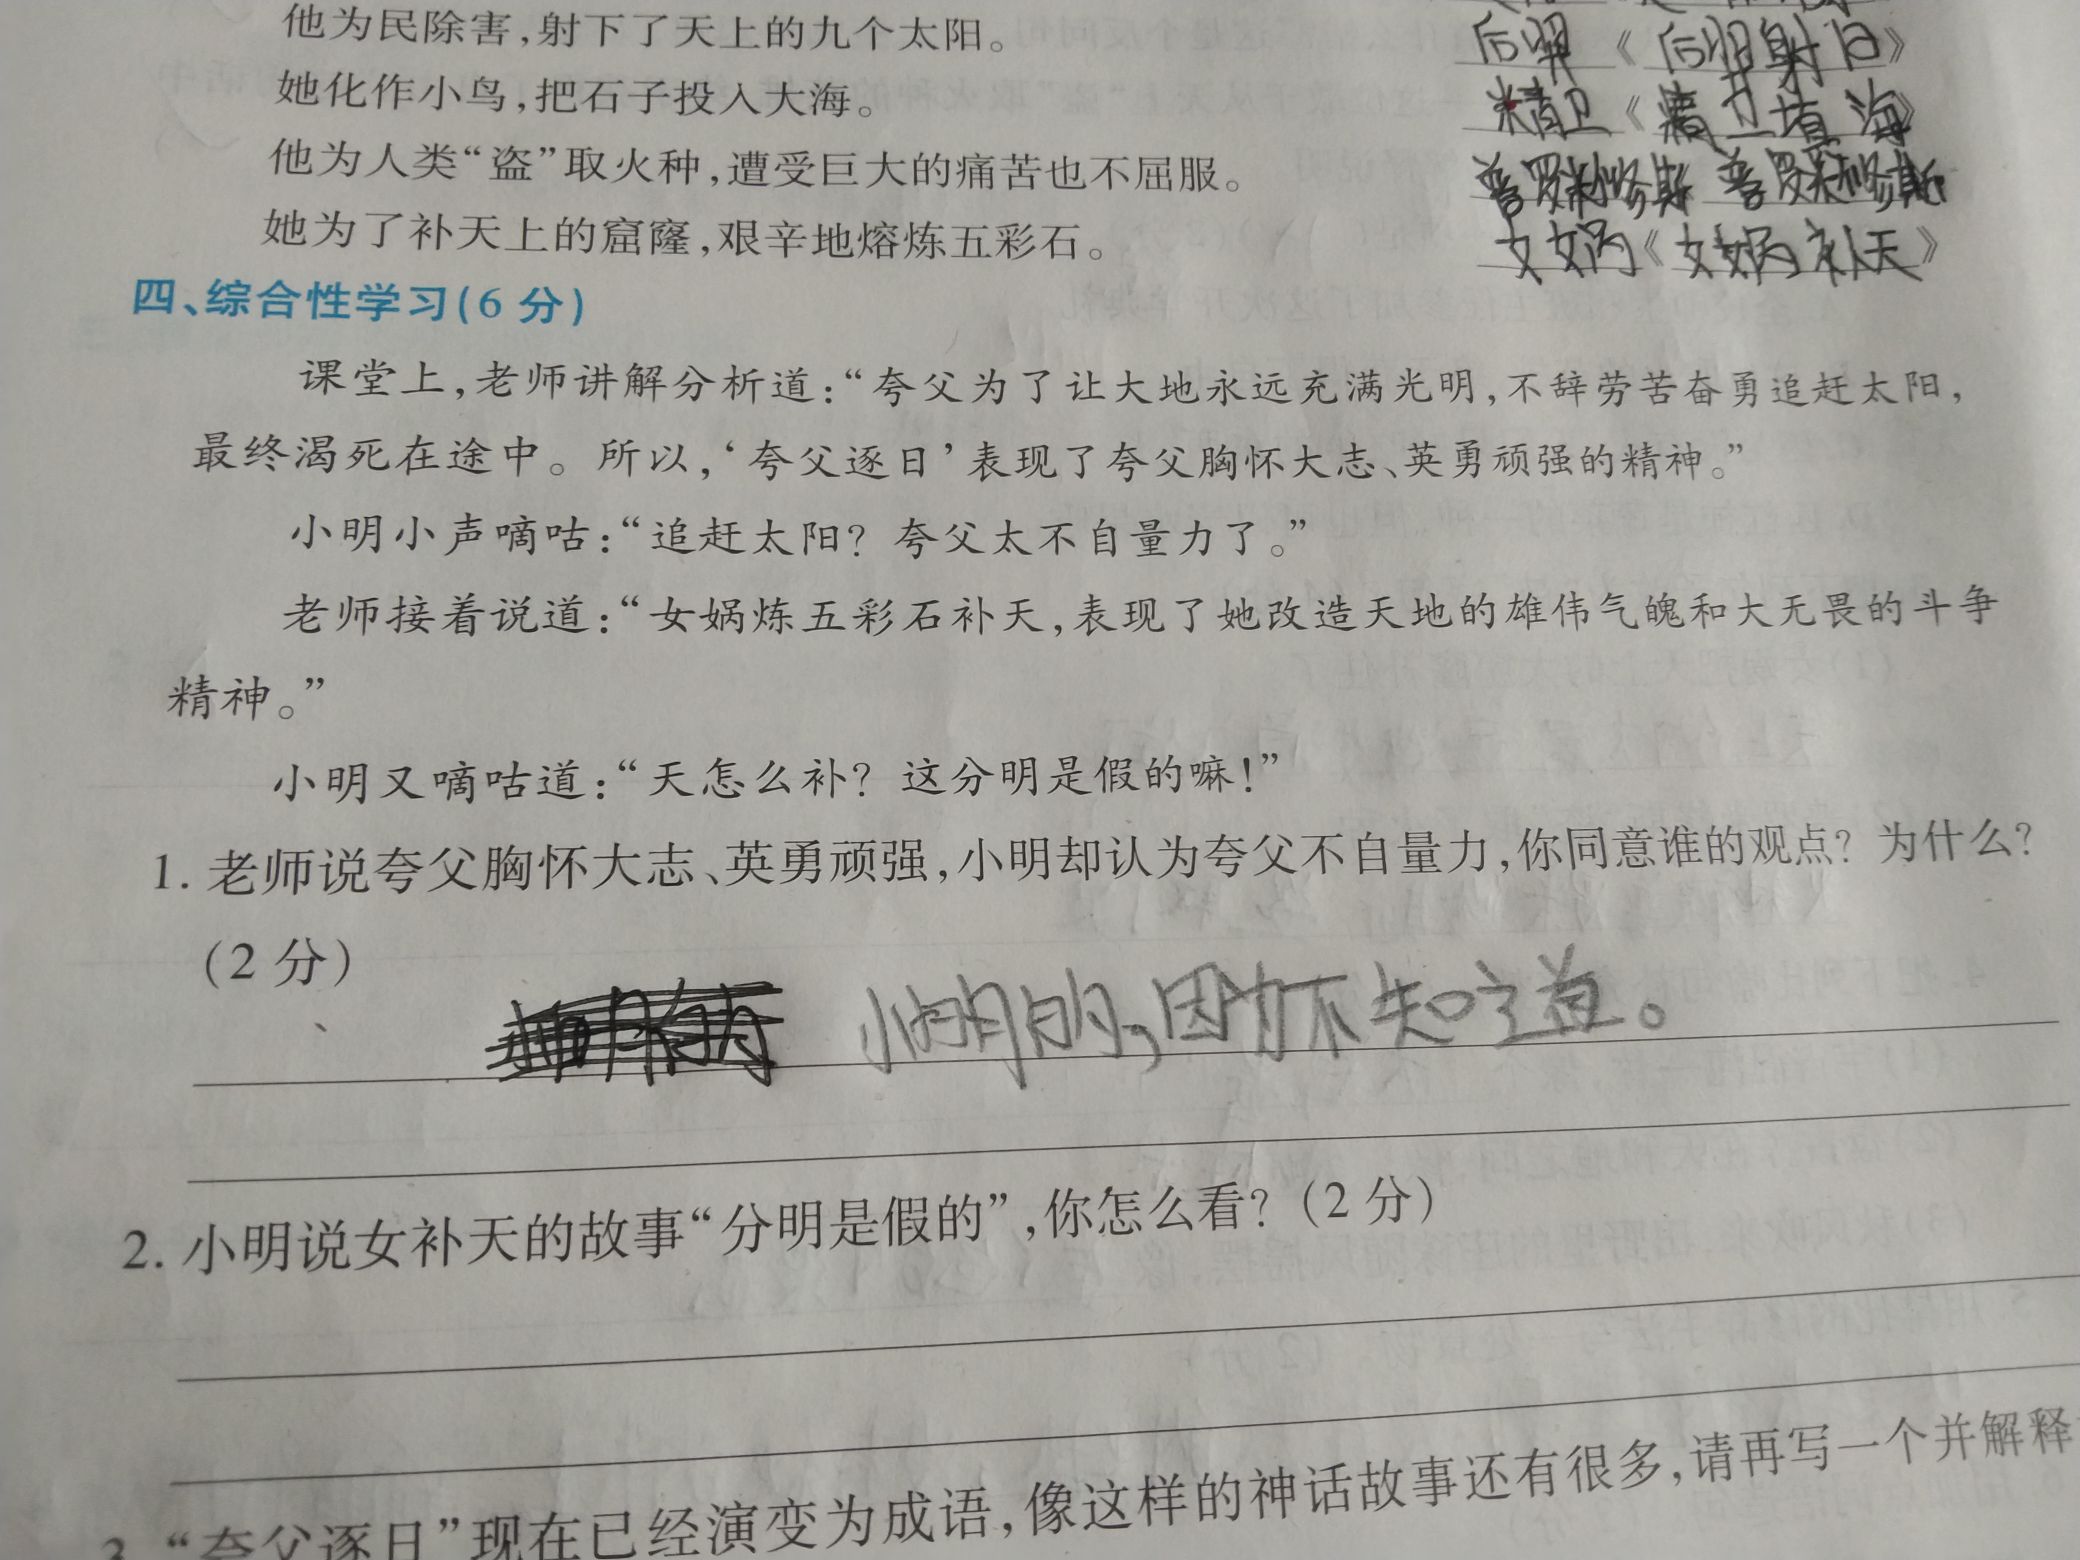 他为民除害,射下了天上的九个太阳。 后羿《后羿射日》
她化作小鸟,把石子投入大海。 精卫《精卫填海》
他为人类“盗”取火种,遭受巨大的痛苦也不屈服。 普罗米修斯 普罗米修斯
她为了补天上的窟窿,艰辛地熔炼五彩石。 女女娲《女女娲补天》
四、综合性学习(6分)
课堂上,老师讲解分析道:“夸父为了让大地永远充满光明,不辞劳苦奋勇追赶太阳,
最终渴死在途中。所以,‘夸父逐日’表现了夸父胸怀大志、英勇顽强的精神。”
小明小声嘀咕:“追赶太阳?夸父太不自量力了。”
老师接着说道:“女娲炼五彩石补天,表现了她改造天地的雄伟气魄和大无畏的斗争
精神。”
小明又嘀咕道:“天怎么补?这分明是假的嘛!”
1. 老师说夸父胸怀大志、英勇顽强,小明却认为夸父不自量力,你同意谁的观点?为什么?
(2分)
小明的,因为不知道。
2. 小明说女补天的故事“分明是假的”,你怎么看?(2分)
3. “夸父逐日”现在已经演变为成语,像这样的神话故事还有很多,请再写一个并解释